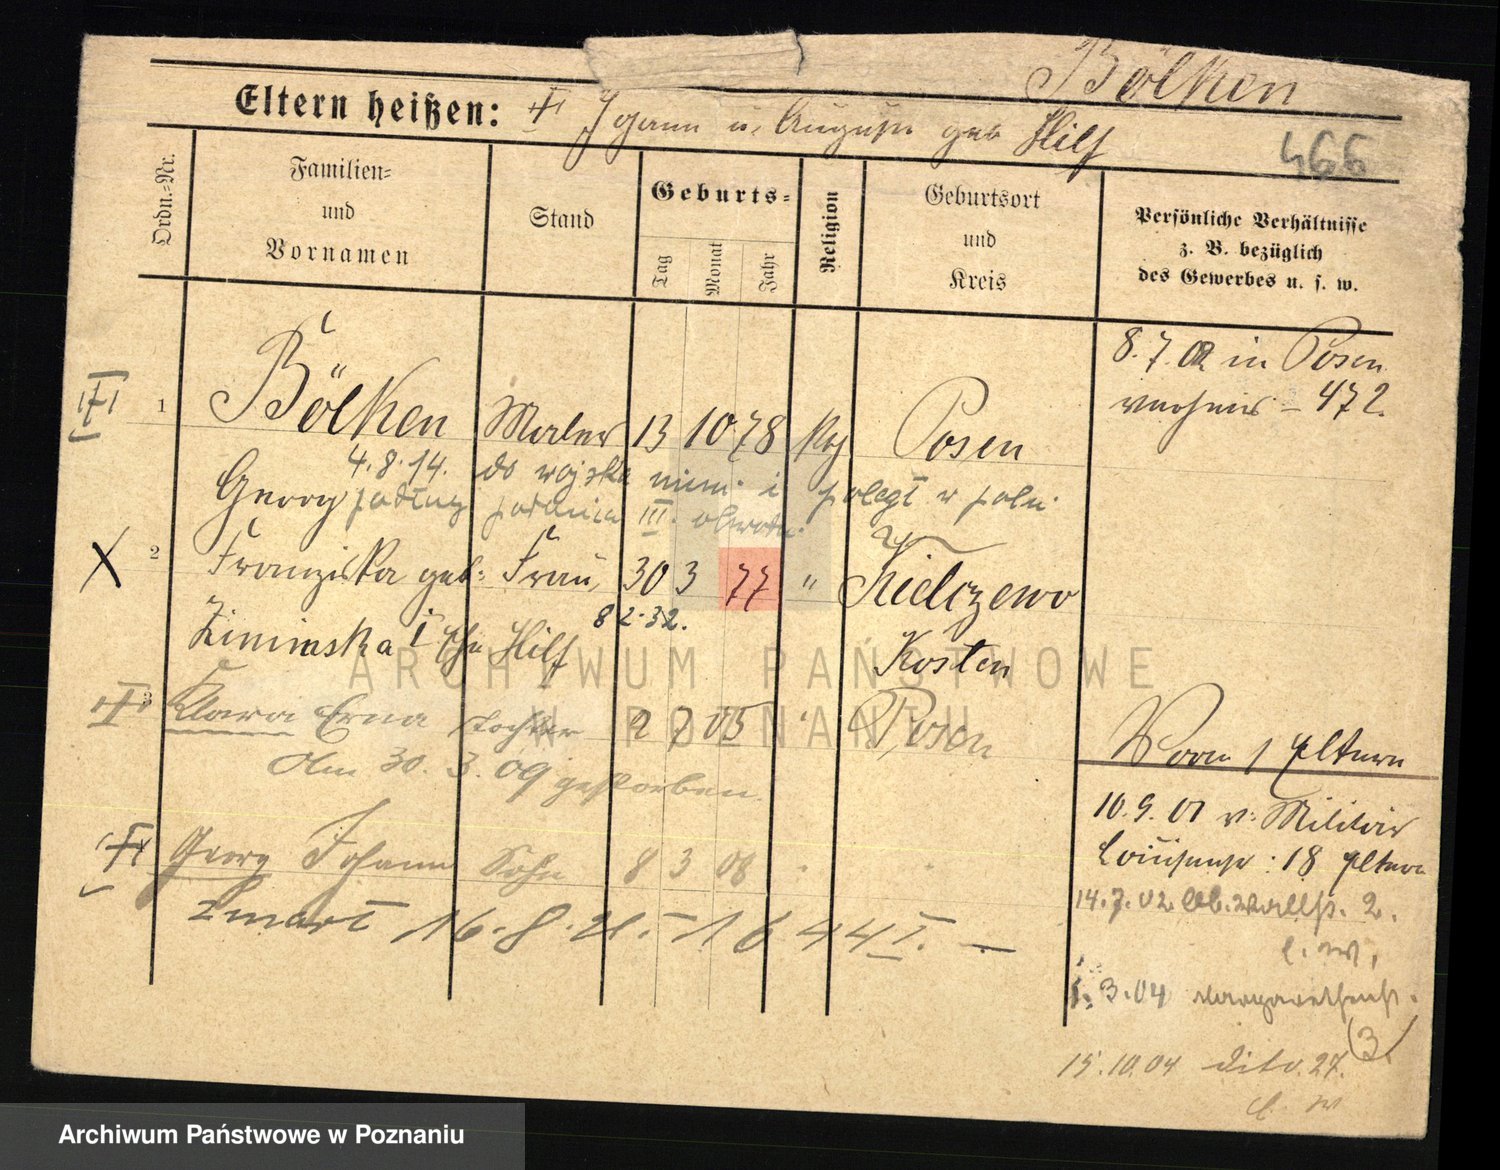 Bölken
Eltern heißen: Johann u. Auguste geb Hilf
466
Ordn.=Nr.
Familien=
und
Vornamen
Stand
Geburts=
Tag
Monat
Jahr
Religion
Geburtsort
und
Kreis
Persönliche Verhältnisse
z. B. bezüglich
des Gewerbes u. s. w.
1 Bölken Maler 13 10 78 Posen
8.7.02 in Posen
472.
Georg
4.8.14. do wojska niem. i poległ w
podług III.
2 Franziska geb. Frau, 30 3 77 " Kielczewo
8 2.32.
Ziminska Hilf Kosten
3 Klara Erna Tochter 2 7 05 " Posen
Am 30.3.09 gestorben.
Georg Johann Sohn 8 3 08
zmarł 16.8.21. - 1644 I. —
Eltern
10.9.01 v. Militär
: 18 Eltern
14.7.02 2.
3.04
(3)
15.10.04 dito. 27.
ARCHIWUM PAŃSTWOWE
W POZNANIU
Archiwum Państwowe w Poznaniu